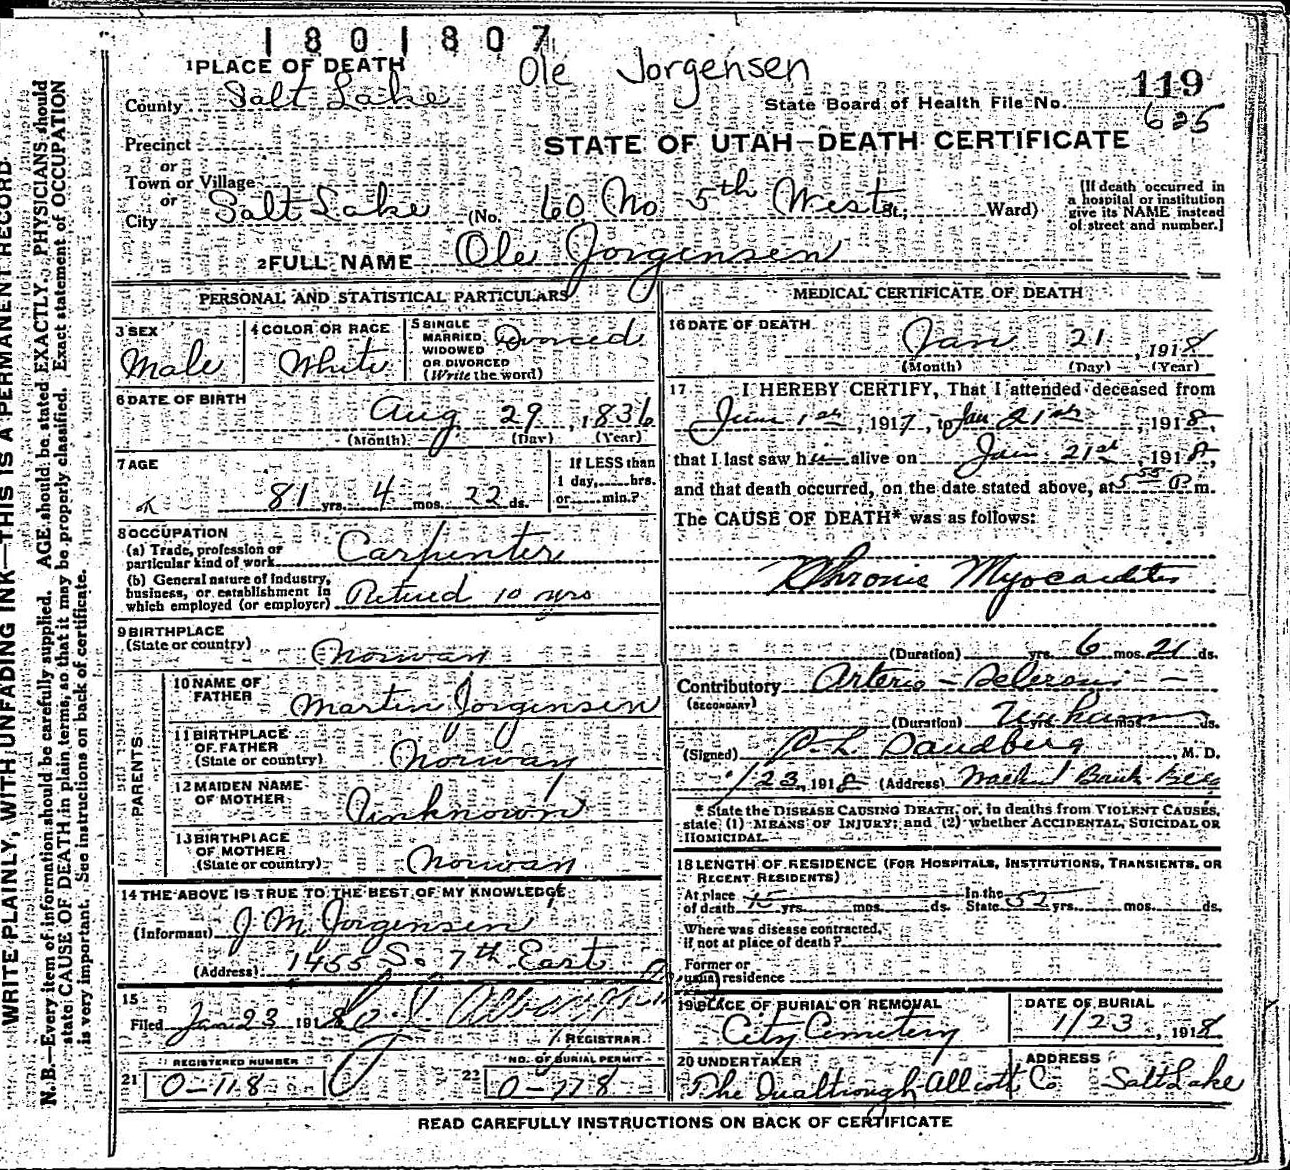 1801807
Ole Jorgensen
1 PLACE OF DEATH
119
County Salt Lake
State Board of Health File No.
625
Precinct
STATE OF UTAH—DEATH CERTIFICATE
or
Town or Village
or
City Salt Lake (No. 60 No 5th West St.; Ward)
[If death occurred in
a hospital or institution
give its NAME instead
of street and number.]
2 FULL NAME Ole Jorgensen
PERSONAL AND STATISTICAL PARTICULARS
3 SEX
Male
4 COLOR OR RACE
White
5 SINGLE
MARRIED
WIDOWED
OR DIVORCED
(Write the word)
Divorced
6 DATE OF BIRTH
Aug 29, 1836
(Month) (Day) (Year)
7 AGE
81 yrs. 4 mos. 22 ds.
If LESS than
1 day, hrs.
or min.?
8 OCCUPATION
(a) Trade, profession or
particular kind of work
Carpenter
(b) General nature of industry,
business, or establishment in
which employed (or employer)
Retired 10 yrs
9 BIRTHPLACE
(State or country)
Norway
PARENTS
10 NAME OF
FATHER
Martin Jorgensen
11 BIRTHPLACE
OF FATHER
(State or country)
Norway
12 MAIDEN NAME
OF MOTHER
Unknown
13 BIRTHPLACE
OF MOTHER
(State or country)
Norway
14 THE ABOVE IS TRUE TO THE BEST OF MY KNOWLEDGE
(Informant) J M Jorgensen
(Address) 1455 So. 7th East
15
Filed Jan 23 1918
REGISTRAR
REGISTERED NUMBER
21 0-118
NO. OF BURIAL PERMIT
22 0-118
MEDICAL CERTIFICATE OF DEATH
16 DATE OF DEATH
Jan 21, 1918
(Month) (Day) (Year)
17 I HEREBY CERTIFY, That I attended deceased from
June 1st, 1917, to Jan 21st, 1918,
that I last saw him alive on Jan 21st, 1918,
and that death occurred, on the date stated above, at 5 55 P m.
The CAUSE OF DEATH* was as follows:
Chronic Myocarditis
(Duration) yrs. 6 mos. 21 ds.
Contributory Arterio-Sclerosis
(SECONDARY)
(Duration) yrs. mos. ds.
(Signed) P. L. Sandberg, M. D.
1/23, 1918 (Address)
* State the DISEASE CAUSING DEATH, or, in deaths from VIOLENT CAUSES,
state (1) MEANS OF INJURY; and (2) whether ACCIDENTAL, SUICIDAL OR
HOMICIDAL.
18 LENGTH OF RESIDENCE (FOR HOSPITALS, INSTITUTIONS, TRANSIENTS, OR
RECENT RESIDENTS)
At place
of death 15 yrs. mos. ds.
In the
State 52 yrs. mos. ds.
Where was disease contracted,
if not at place of death?
Former or
usual residence
19 PLACE OF BURIAL OR REMOVAL
City Cemetery
DATE OF BURIAL
1/23, 1918
20 UNDERTAKER
The Qualtrough Allcott Co
ADDRESS
Salt Lake
READ CAREFULLY INSTRUCTIONS ON BACK OF CERTIFICATE
WRITE PLAINLY, WITH UNFADING INK—THIS IS A PERMANENT RECORD
N. B.—Every item of information should be carefully supplied. AGE should be stated EXACTLY. PHYSICIANS should
state CAUSE OF DEATH in plain terms, so that it may be properly classified. Exact statement of OCCUPATION
is very important. See instructions on back of certificate.